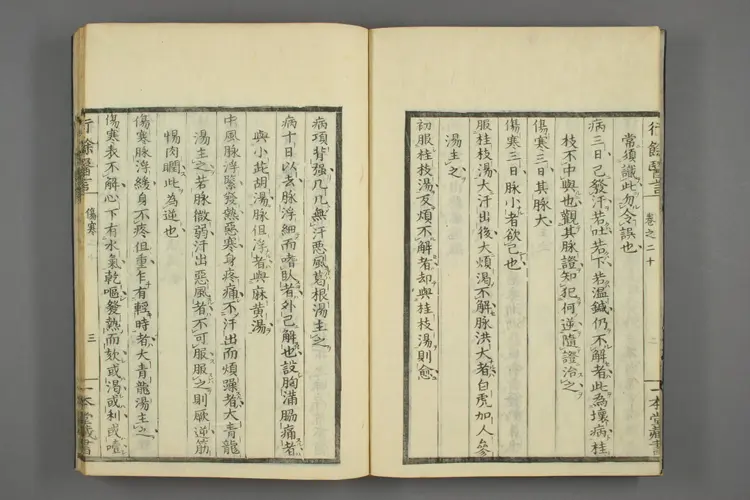 行餘醫言
卷之二十
二
一本堂藏書
常須識此勿令誤也
病三日已發汗若吐若下若溫鍼仍不解者此為壞病桂
枝不中與也觀其脈證知犯何逆隨證治之
傷寒三日其脈大
傷寒三日脈小者欲已也
服桂枝湯大汗出後大煩渴不解脈洪大者白虎加人參
湯主之
初服桂枝湯反煩不解者却與桂枝湯則愈
病項背強几几無汗惡風葛根湯主之
病十日以去脈浮細而嗜臥者外已解也設胸滿脇痛者
與小柴胡湯脈但浮者與麻黃湯
中風脈浮緊發熱惡寒身疼痛不汗出而煩躁者大青龍
湯主之若脈微弱汗出惡風者不可服服之則厥逆筋
惕肉瞤此為逆也
傷寒脈浮緩身不疼但重乍有輕時者大青龍湯主之
傷寒表不解心下有水氣乾嘔發熱而欬或渴或利或噎
行餘醫言
傷寒
三
一本堂藏書